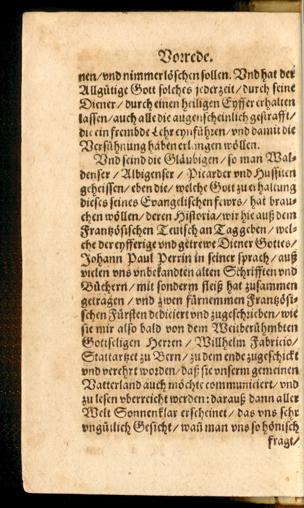 Vorrede.
nen/ vnd nimmer löschen sollen. Vnd hat der
Allgütige Gott solches jederzeit/ durch seine
Diener/ durch einen heiligen Eyffer erhalten
lassen/ auch alle die augenscheinlich gestrafft/
die ein frembde Lehr eynführen/ vnd damit die
Versühnung haben erlangen wöllen.
Vnd seind die Gläubigen/ so man Wal-
denser/ Albigenser/ Picarder vnd Hussiten
geheissen/ eben die/ welche Gott zu erhaltung
dieses seines Evangelischen fewrs/ hat brau-
chen wöllen/ deren Historia/ wir hie auß dem
Frantzösischen Teutsch an Tag geben/ wel-
che der eyfferige vnd getrewe Diener Gottes/
Johann Paul Perrin in seiner sprach/ auß
vielen vns vnbekandten alten Schrifften vnd
Büchern/ mit sonderm fleiß hat zusammen
getragen/ vnd zwen fürnemmen Frantzösi-
schen Fürsten dediciert vnd zugeschrieben/ wie
sie mir also bald von dem Weitberühmbten
Gottseligen Herren/ Willhelm Fabricio/
Stattartzet zu Bern/ zu dem ende zugeschickt
vnd verehrt worden/ daß sie vnserm gemeinen
Vatterland auch möchte communiciert/ vnd
zu lesen vberreicht werden: darauß dann aller
Welt Sonnenklar erscheinet/ das vns sehr
vngütlich Geschicht/ wañ man vns so hönisch
fragt/